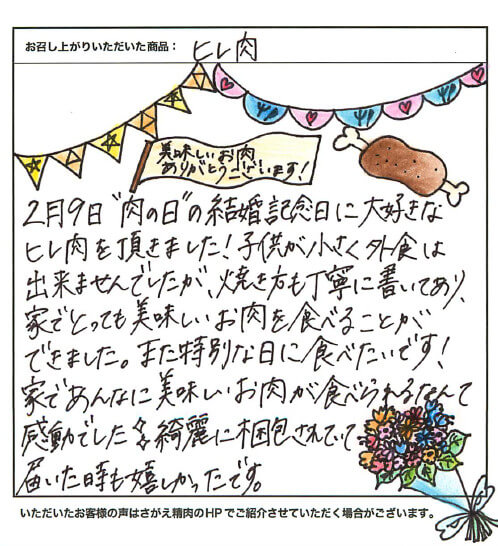 お召し上がりいただいた商品： ヒレ肉
美味しいお肉
ありがとうございます!
2月9日"肉の日"の結婚記念日に大好きな
ヒレ肉を頂きました!子供が小さく外食は
出来ませんでしたが、焼き方も丁寧に書いてあり、
家でとっても美味しいお肉を食べることが
できました。また特別な日に食べたいです!
家であんなに美味しいお肉が食べられるなんて
感動でした 綺麗に梱包されていて
届いた時も嬉しかったです。
いただいたお客様の声はさがえ精肉のHPでご紹介させていただく場合がございます。